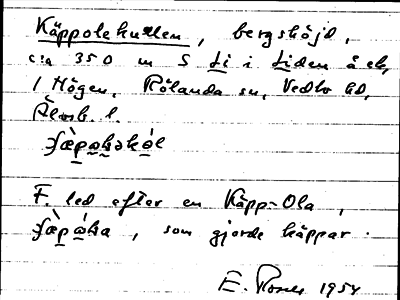 Käppolekullen, bergshöjd,
c:a 350 m S Li i Liden å ek,
1 Högen, Rölanda sn, Vedbo hd,
Älvsb. l.
F. led efter en Käpp-Ola,
som gjorde käppar.
E. 1954